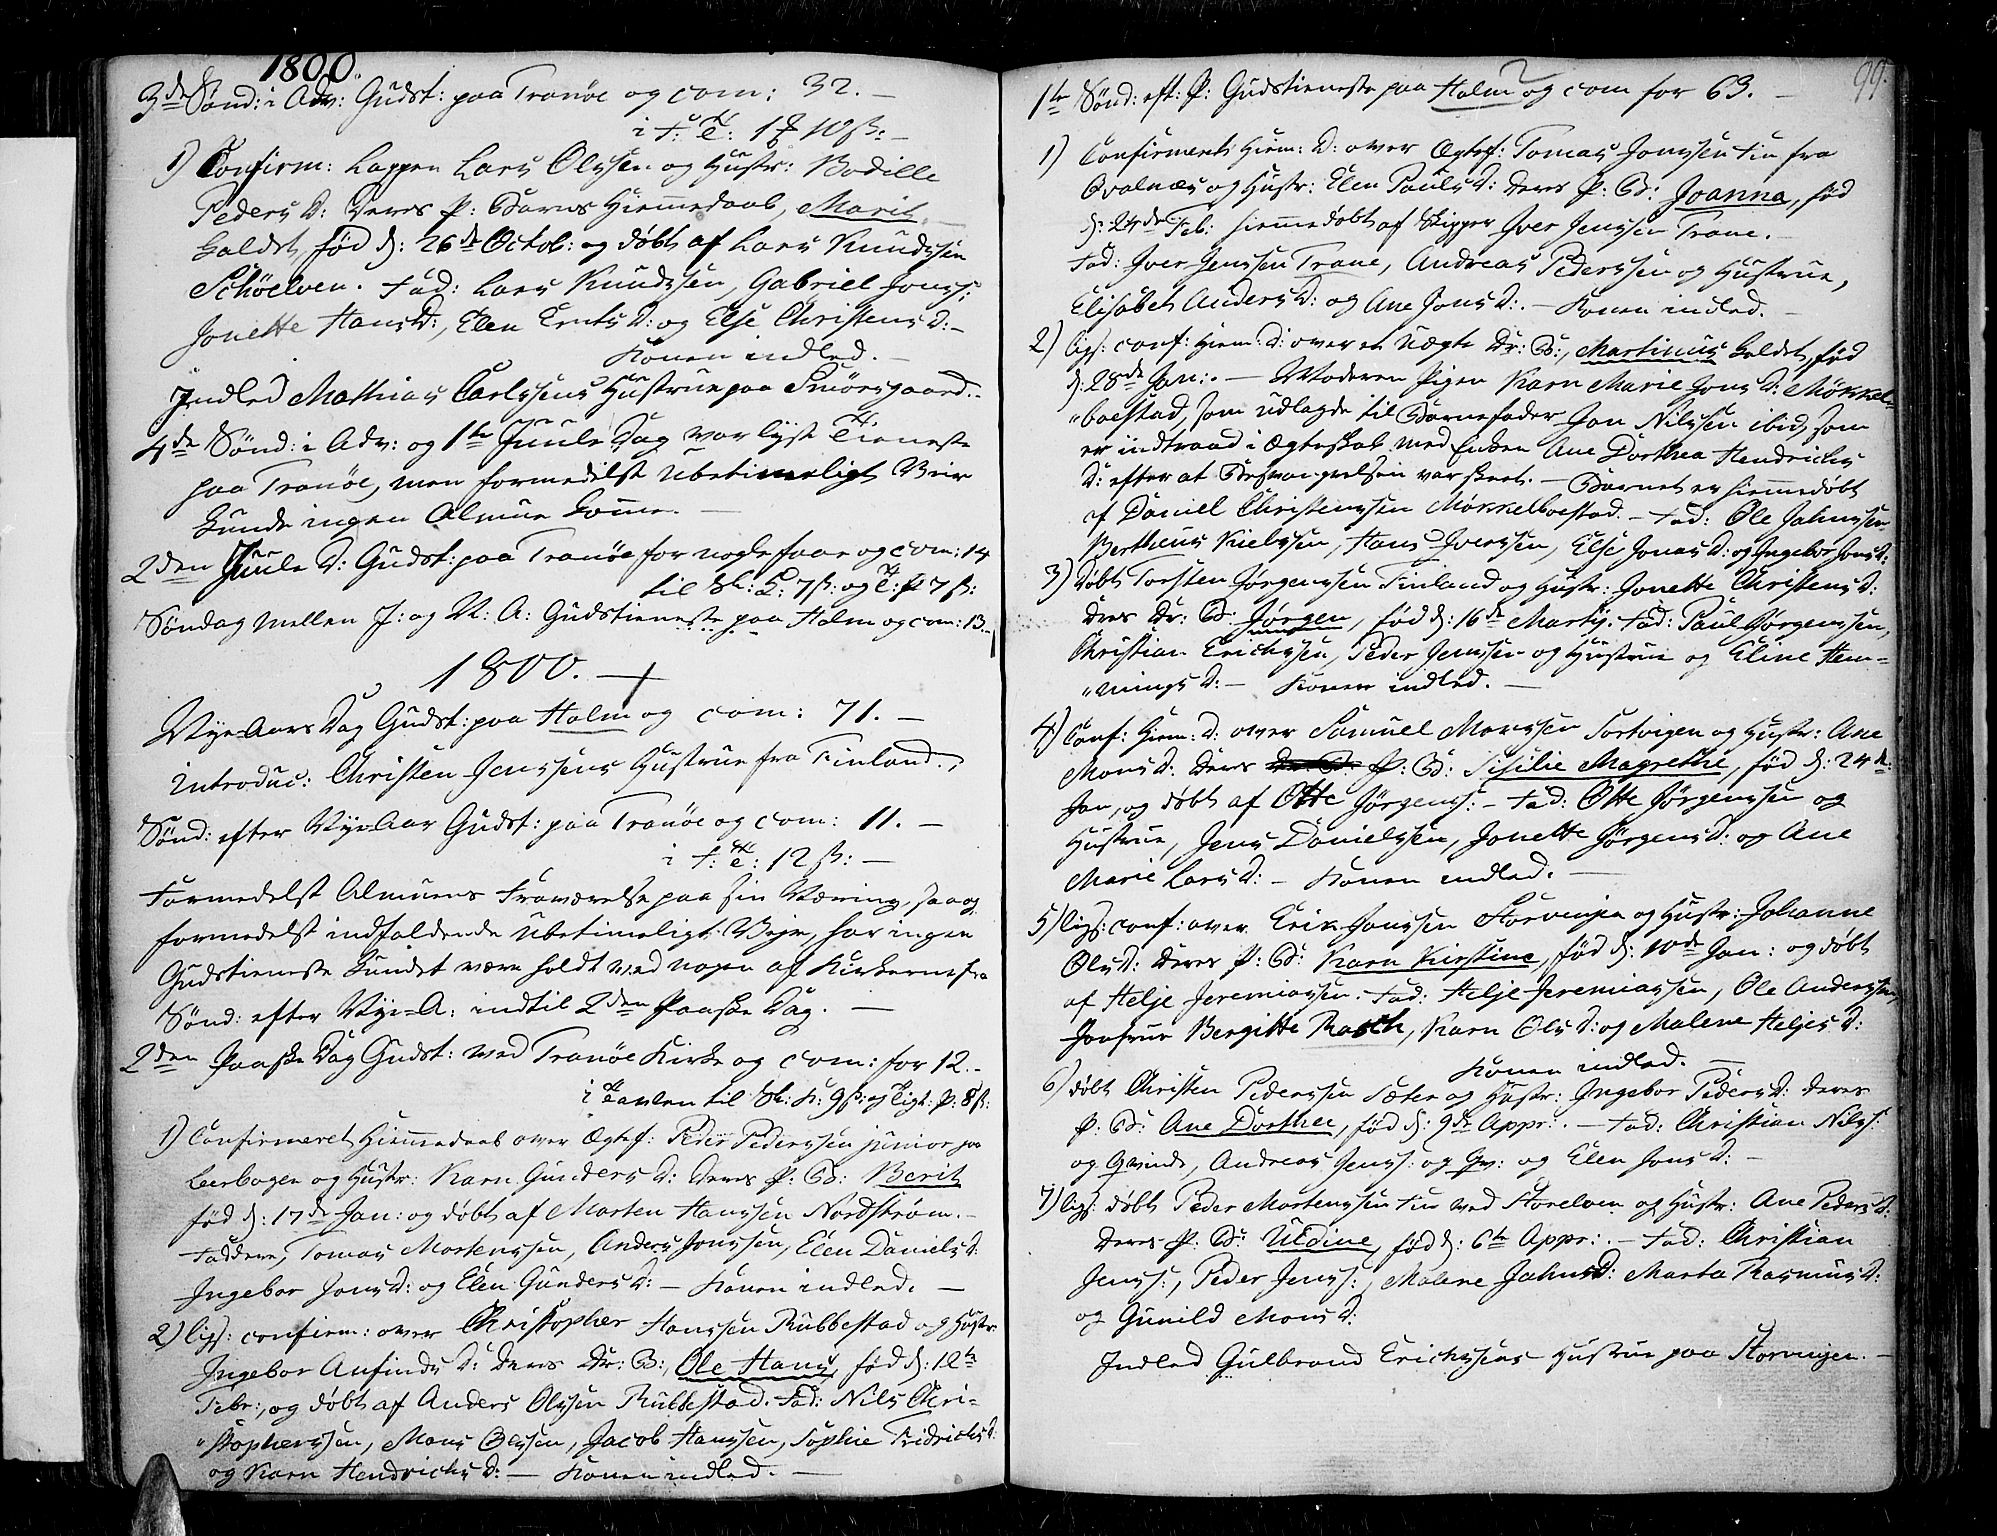 1800.
3de Sønd: i Adv: Gudst: paa Tranøe og com: 32. –
1) Confirm: Lappen Lars Olssen og Hustr: Bodille
Peders D: deres P: Barns Hiemmedaab, Marit
kaldet, fød d: 26de Octob: og døbt af Lars Knudssen
Schöelven. Fad: Lars Knudssen, Gabriel Jonss:
Jonette Hans D:, Elen Ernts D: og Else Christens D: –
Konen indled. –
Indled Mathias Carlssens Hustrue paa Smörsgaard. –
4de Sønd: i Adv: og 1te Juule Dag var lyst Tieneste
paa Tranöe, men formedelst ubetimeligt Veir
kunde ingen Almue komme. –
2den Juule D: Gudst: paa Tranöe for nogle faae og com: 14
Søndag mellem J: og N: A: Gudstieneste paa Holm og com: 13.
1800. –
Nye-Aars Dag Gudst: paa Holm og com: 71. –
introduc: Christen Jenssens Hustrue fra Finland.,
Sønd: efter Nye-Aar Gudst: paa Tranöe og com: 11. –
12 ß: –
Formedelst Almuens Fraværelse paa sin Næring, saa og
formedelst indfaldende ubetimeligt Veir, har ingen
Gudstieneste kundet være holdt ved nogen af Kirkerne fra
Sönd: efter Nye-A: indtil 2den Paaske Dag. –
2den Paaske Dag Gudst: ved Tranöe Kirke og com: for 12. –
i Tavlen til Sk: K: 9 ß: og Ligt: P: 8 ß:
1) Confirmeret Hiemmedaab over Ægtef: Peder Pederssen junior paa
Leerbogen og Hustr: Karn Gunders D: deres P: B: Berit
fød d: 17de Jan: og døbt af Morten Hanssen Nordstrøm. –
Faddere, Tomas Mortenssen, Anders Jonssen, Elen Daniels D:
Ingebor Jons D: og Elen Gunders D: – Konen indled. –
2) ligs: confirm: over Christopher Hanssen Rubbestad og Hustr
Ingebor Anfinds D: deres Dr: B:, Ole Hans, fød d: 12te
Febr:, og døbt af Anders Olssen Rubbestad. Fad: Nils Chri-
"stopherssen, Mons Olssen, Jacob Hanssen, Sophie Fridrichs D:
og Karn Hendrichs D: – Konen indled. –
99.
1te Sønd: eft: P: Gudstieneste paa Holm og com for 63. –
1) Confirmert Hiem: D: over Ægtef: Tomas Jonssen Fin fra
Qvalnæs og Hustr: Elen Pauls D: deres P: B: Joanna, fød
d: 24de Feb: hiemmedøbt af Skipper Iver Jenssen Trane.
Fad: Iver Jenssen Trane, Andreas Pederssen og Hustrue,
Elisabet Anders D: og Ane Jons D:. – Konen indled. –
2) ligs: conf: Hiem: D: over et uægte Dr: B:, Martinus kaldet, fød
d: 28de Jan:. – Moderen Pigen Karn Marie Jons D: Møkkel-
"boestad, som udlagde til Barnefader Jon Nilssen ibid, som
er indtraad i Ægteskab med Enken Ane Dorthea Hendrichs
D: efter at Besvangrelsen var skeet. – Barnet er hiemmedøbt
af Daniel Christenssen Møkkelboestad. – Fad: Ole Jahnssen
Bertheus Kielssen, Hans Iverssen, Else Jonas D: og Ingebor Jons D:
3) Døbt Torsten Jørgenssen Finland og Hustr: Jonette Christens D:
deres Dr: B: Jørgen, fød d: 16de Martij. Fad: Paul Jørgenssen,
Christian Erichssen, Peder Jenssen og Hustrue og Eline Hem-
"mings D: – Konen indled. –
4) Conf: Hiem: D: over Samuel Monssen Sortvigen og Hustr: Ane
Mons D: deres P: B: Sisilie Magrethe, fød d: 24de
Jan, og døbt af Otte Jørgenss: – Fad: Otte Jørgenssen og
Hustrue, Jens Danielssen, Jonette Jørgens D: og Ane
Marie Lars D: – Konen indled. –
5) ligs: conf: over Erik Jonssen Storvigen og Hustr: Johanne
Ols D: deres P: B: Karn Kirstine, fød d: 10de Jan: og døbt
af Helje Jeremiassen. Fad: Helje Jeremiassen, Ole Anderssen,
Jomfrue Bergitte Rasch, Karn Ols D: og Malene Heljes D:
Konen indled. –
6) døbt Christen Pederssen Sæter og Hustr: Ingebor Peders D: deres
P: B: Ane Dorthee, fød d: 9de Appr:. – Fad: Christian Nilss:
og Qvinde, Andreas Jenss: og Qv: og Elen Jons D: –
7) ligs: døbt Peder Mortenssen Fin ved Storelven og Hustr: Ane Peders D:
deres P: B: Uldine, fød d: 6te Appr:. – Fad: Christian
Jenss:, Peder Jenss:, Malene Jahns D: Marta Rasmus D:
og Gunild Mons D:
Indled Gulbrand Erichssens Hustrue paa Storvigen. –